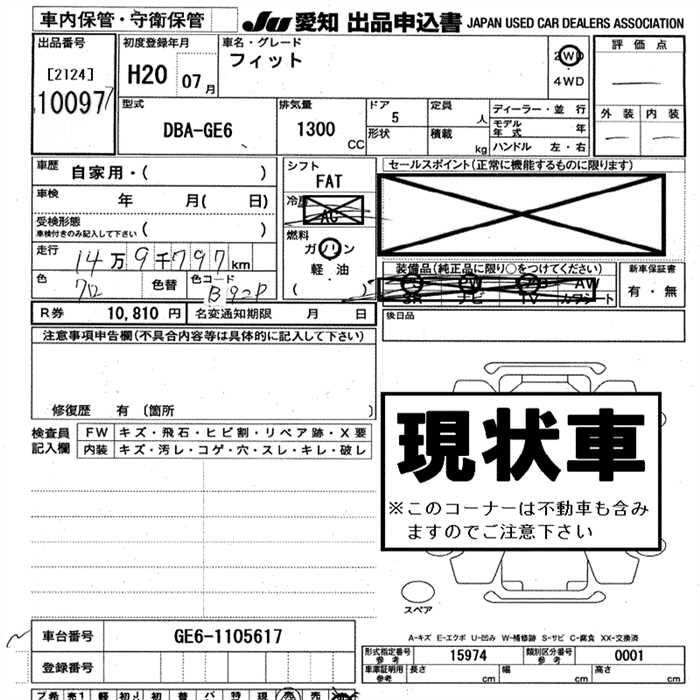 車内保管・守衛保管
JU 愛知 出品申込書 JAPAN USED CAR DEALERS ASSOCIATION
出品番号 初度登録年月 車名・グレード 評価点
[2124] H20 07月 フィット 2WD
10097 4WD
外装 内装
型式 排気量 ドア 定員 ディーラー・並行
DBA-GE6 1300 CC 5 人 モデル年式 年
形状 積載 kg ハンドル 左・右
車歴 自家用・( ) シフト セールスポイント(正常に機能するものに限ります)
FAT
車検 年 月( 日) 冷房
AC
受検形態 ( )
車検付きのみ記入して下さい
燃料
ガソリン
軽油
( )
走行 14万9千797km
色 色替 色コード
B92P
装備品(純正品に限り○をつけてください) 新車保証書
AW 有・無
SR ナビ TV カワシート
R券 10,810 円 名変通知期限 月 日 後日品
注意事項申告欄(不具合内容等は具体的に記入して下さい)
修復歴 有〔箇所 〕
現状車
※このコーナーは不動車も含み
ますのでご注意下さい
検査員 FW キズ・飛石・ヒビ割・リペア跡・X要
記入欄 内装 キズ・汚レ・コゲ・穴・スレ・キレ・破レ
スペア
A-キズ E-エクボ U-凹み W-補修跡 S-サビ C-腐食 XX-交換済
車台番号 GE6-1105617
登録番号
形式指定番号 参考 15974 類別区分番号 参考 0001
車庫証明用 参考 長さ cm 幅 cm 高さ cm